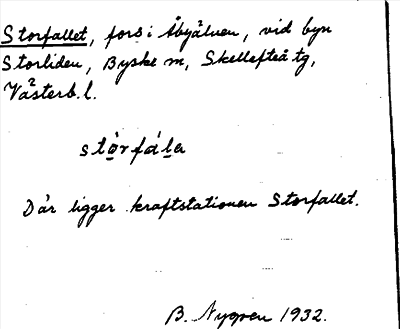 Storfallet, fors i Åbyälven, vid byn
Storliden, Byske sn, Skellefteå tg,
Västerb. l.
stórfála
Där ligger kraftstationen Storfallet.
B. Nygren 1932.